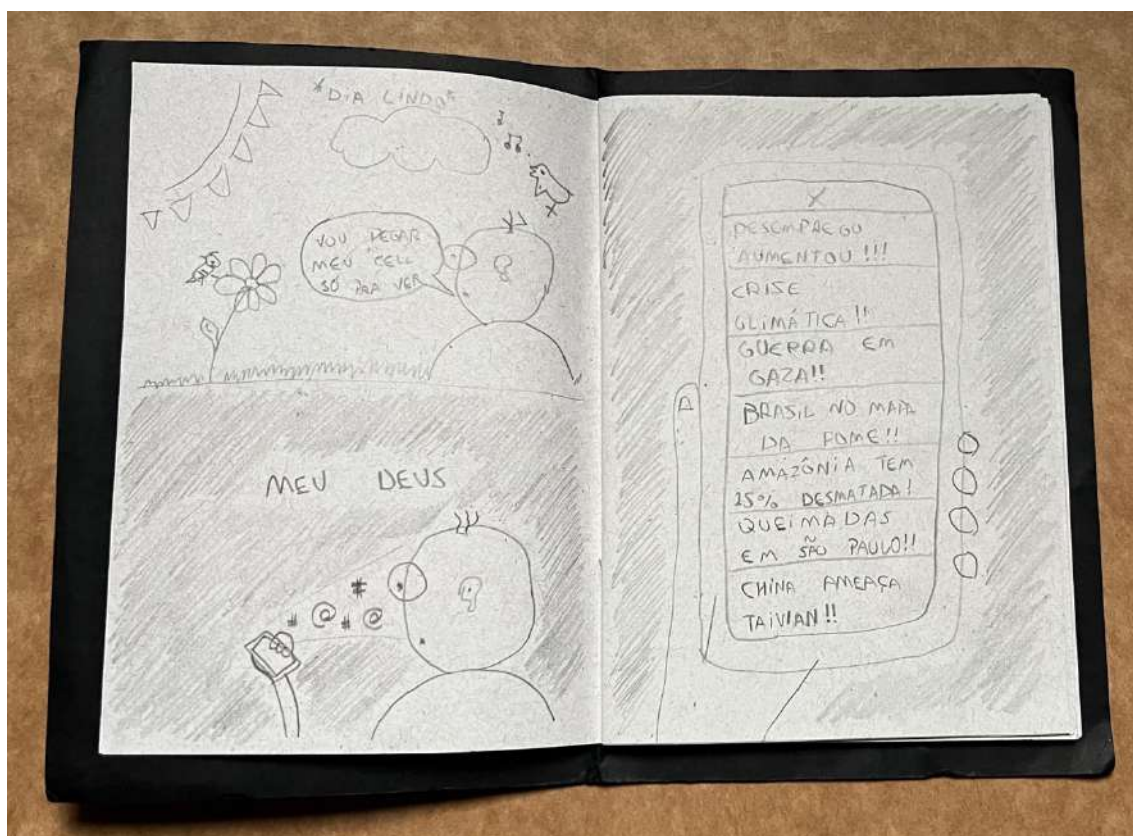 *DIA LINDO*
VOU PEGAR
MEU CELL
SÓ PRA VER
MEU DEUS
# @ # @ #
X
DESEMPREGO
AUMENTOU!!!
CRISE
CLIMÁTICA!!
GUERRA EM
GAZA!!
BRASIL NO MAPA
DA FOME!!
AMAZÔNIA TEM
25% DESMATADA!
QUEIMADAS
EM SÃO PAULO!!
CHINA AMEAÇA
TAIWAN!!